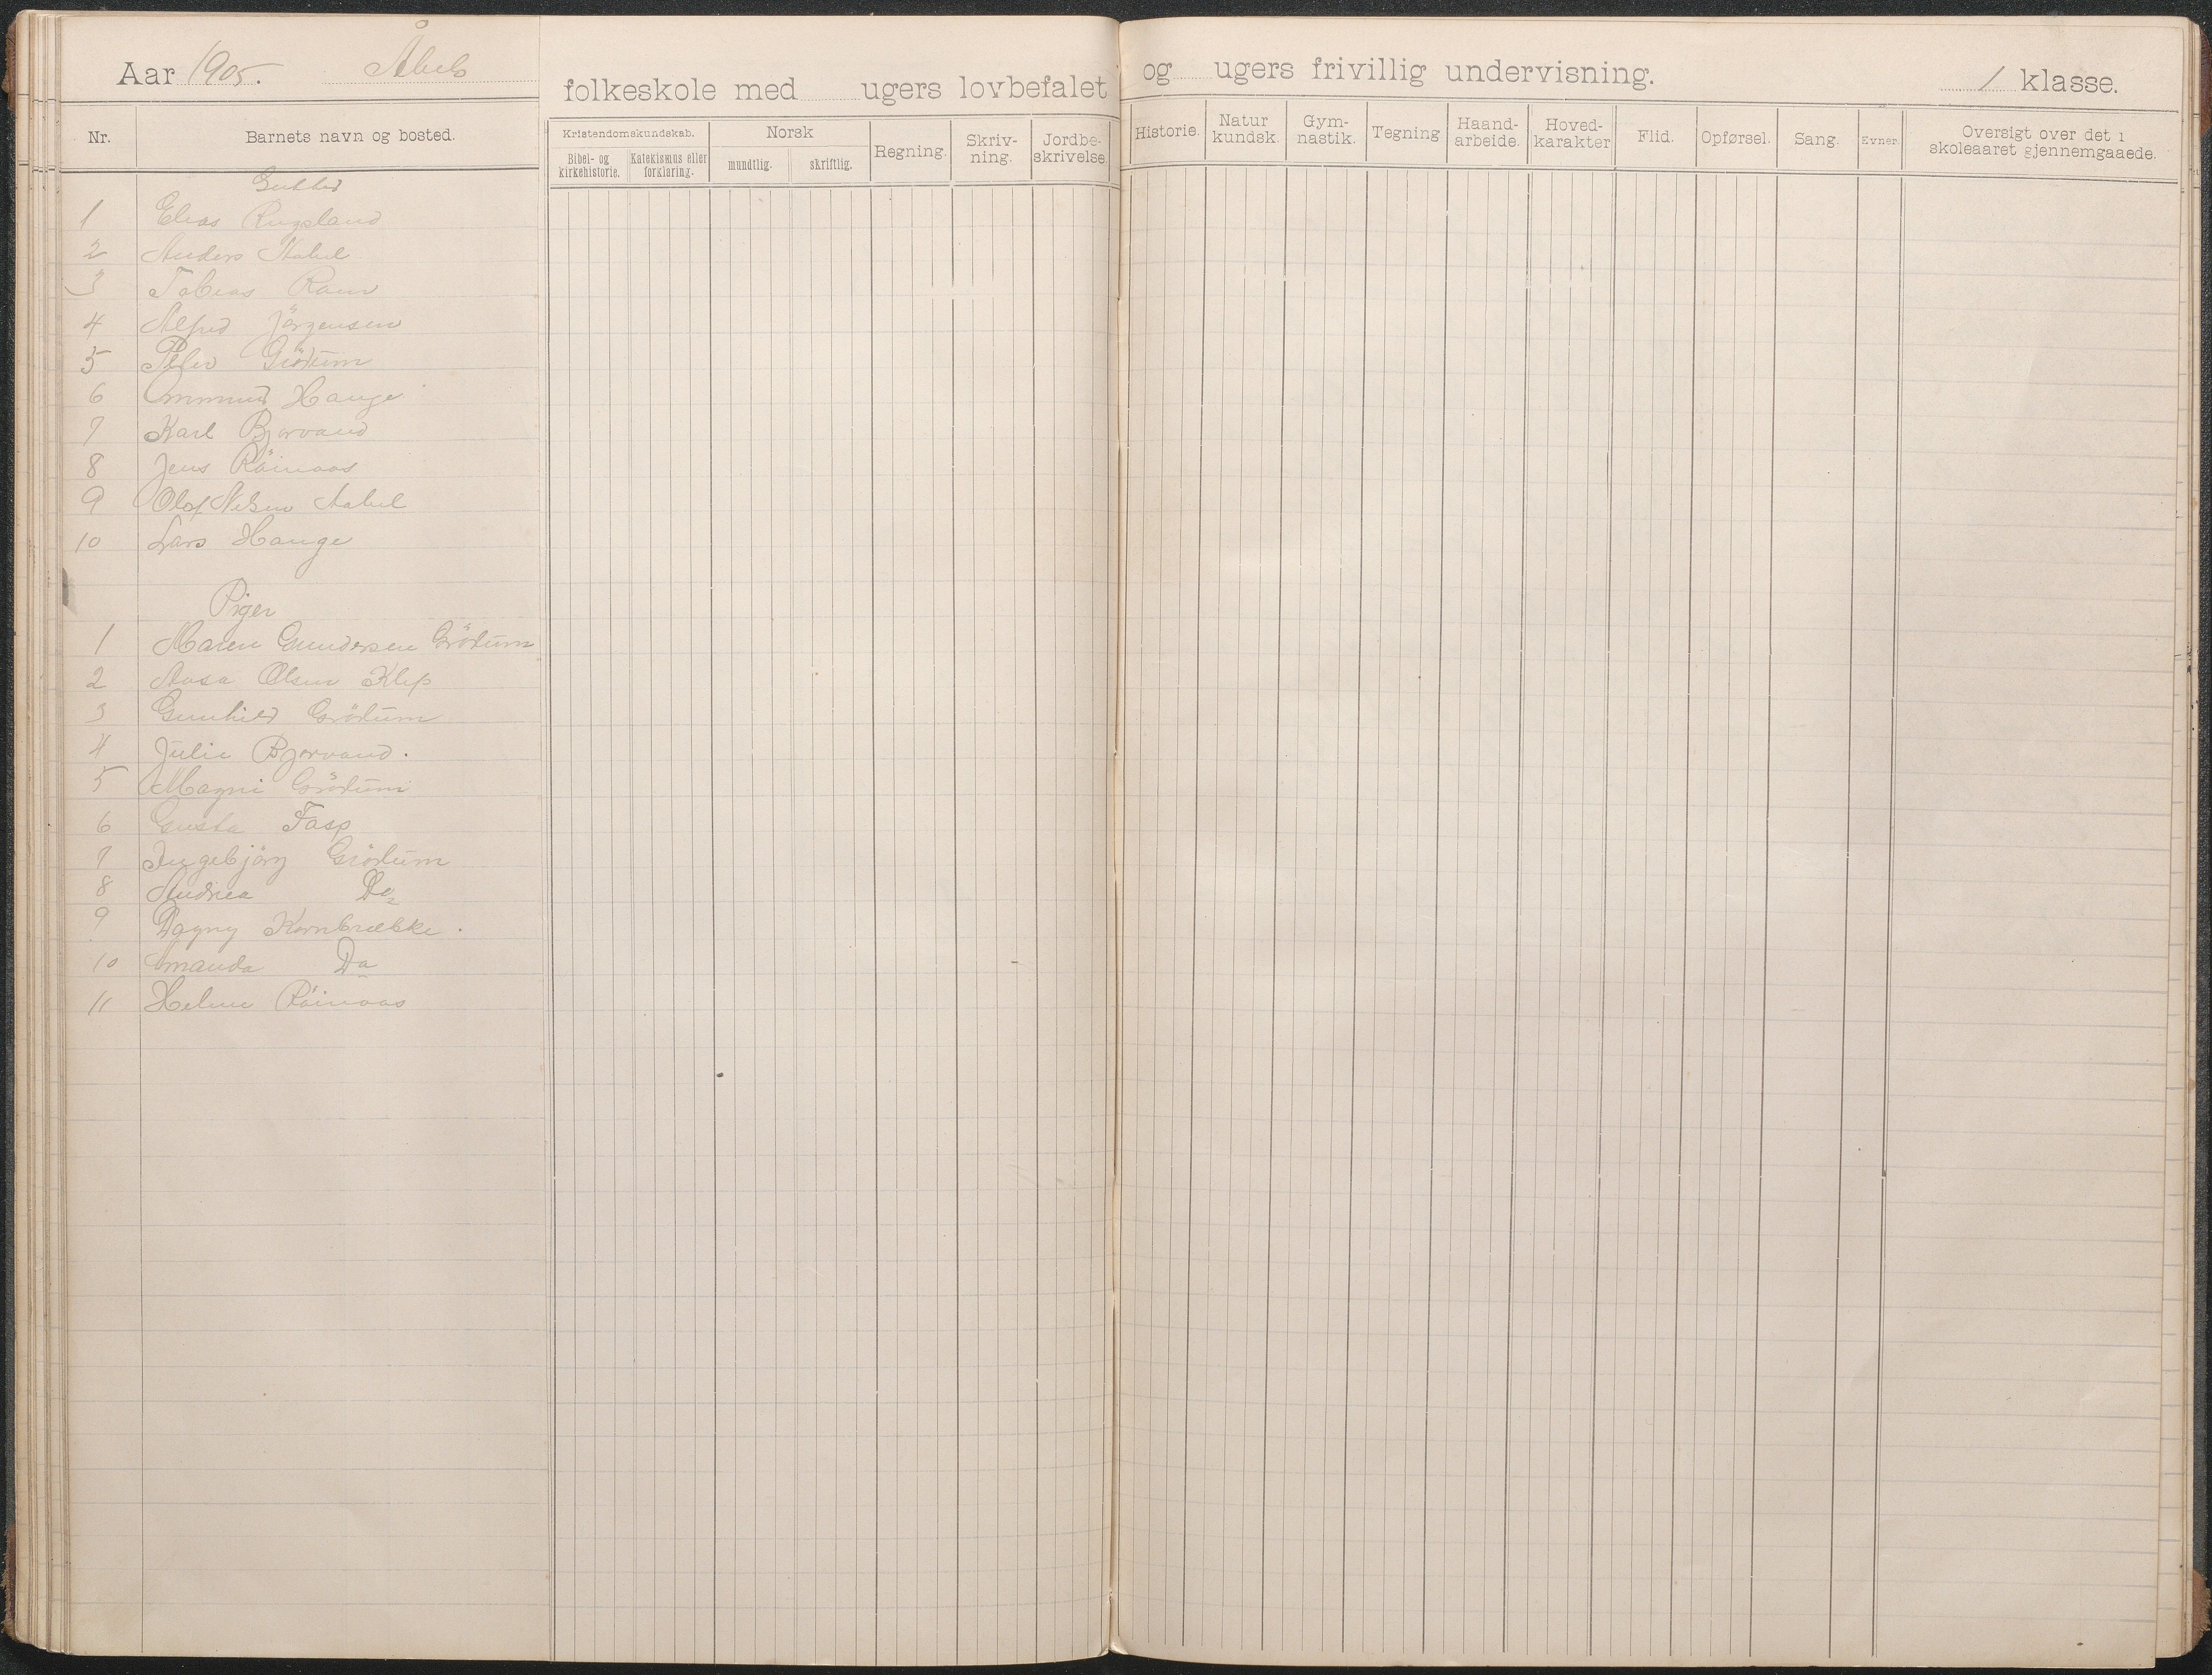 Aar 1905. Åbels folkeskole med ugers lovbefalet og ugers frivillig undervisning. 1 klasse.
Nr. Barnets navn og bosted. Kristendomskundskab. Bibel- og kirkehistorie. Katekismus eller forklaring. Norsk mundtlig. skriftlig. Regning. Skriv-ning. Jordbe-skrivelse. Historie. Natur kundsk. Gym-nastik. Tegning Haand-arbeide. Hoved-karakter Flid. Opførsel. Sang. Evner. Oversigt over det i skoleaaret gjennemgaaede.
Gutter
1 Elias Rugsland
2 Anders Aabel
3 Tobias Ram
4 Alfred Jörgensen
5 Peder Grödum
6 Ommund Hauge
7 Karl Bjorvand
8 Jens Röinaas
9 Olaf Nilsen Aabel
10 Lars Hauge
Piger
1 Maren Gundersen Grödum
2 Aasa Olsen Klep
3 Gunhild Grödum
4 Julie Bjorvand.
5 Magni Grödum
6 Gusta Fasp
7 Ingebjörg Grödum
8 Andrea Do
9 Dagny Kornbrække.
10 Amanda Do
11 Helene Röinaas